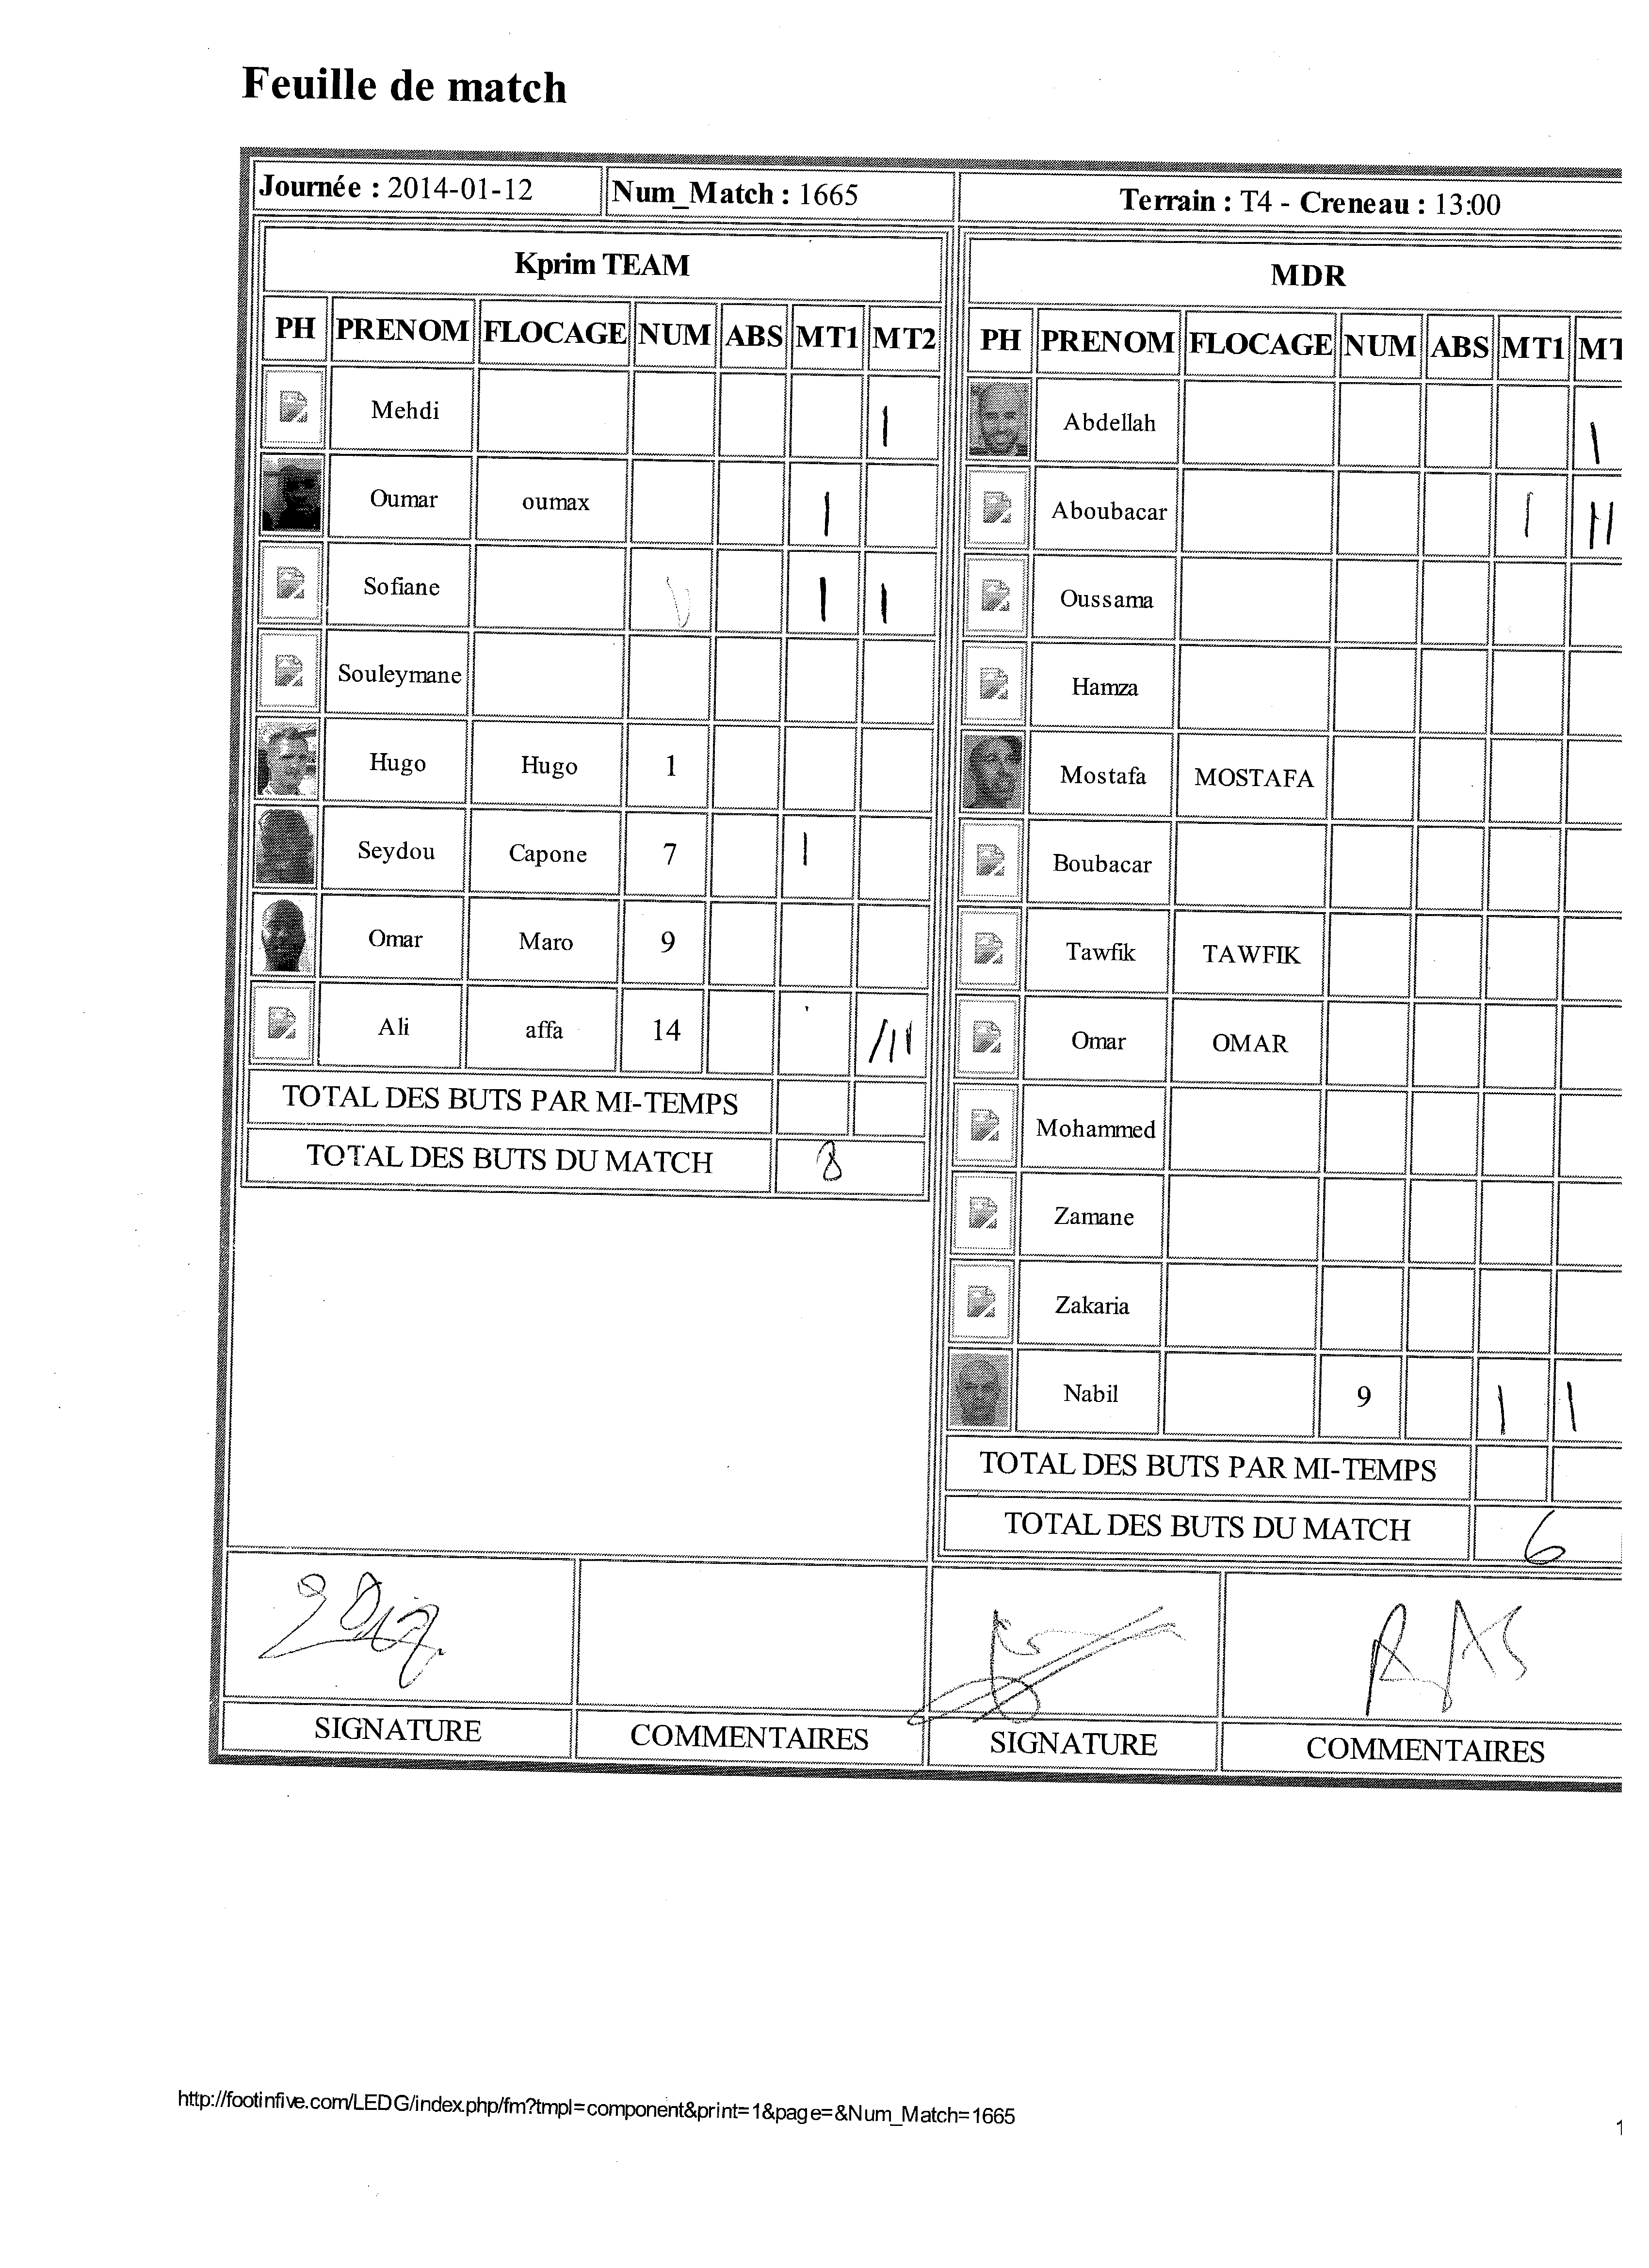 Feuille de match
Journée : 2014-01-12 Num_Match : 1665 Terrain : T4 - Creneau : 13:00
Kprim TEAM
PH PRENOM FLOCAGE NUM ABS MT1 MT2
Mehdi |
Oumar oumax |
Sofiane | |
Souleymane
Hugo Hugo 1
Seydou Capone 7 |
Omar Maro 9
Ali affa 14 |||
TOTAL DES BUTS PAR MI-TEMPS
TOTAL DES BUTS DU MATCH 8
MDR
PH PRENOM FLOCAGE NUM ABS MT1 MT
Abdellah |
Aboubacar | ||
Oussama
Hamza
Mostafa MOSTAFA
Boubacar
Tawfik TAWFIK
Omar OMAR
Mohammed
Zamane
Zakaria
Nabil 9 | |
TOTAL DES BUTS PAR MI-TEMPS
TOTAL DES BUTS DU MATCH 6
RAS
SIGNATURE COMMENTAIRES SIGNATURE COMMENTAIRES
http://footinfive.com/LEDG/index.php/fm?tmpl=component&print=1&page=&Num_Match=1665
1